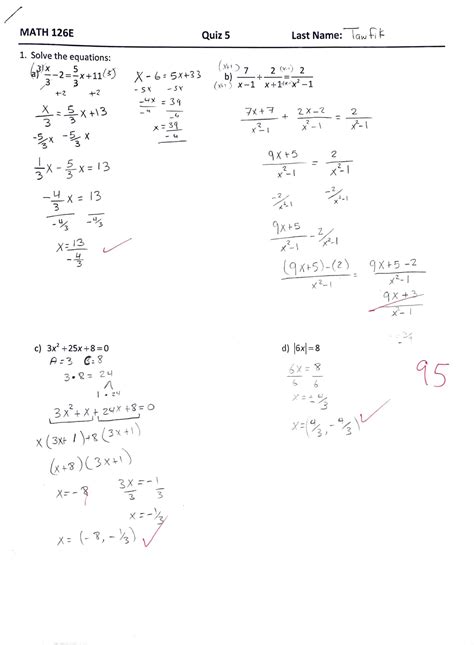 MATH 126E Quiz 5 Last Name: Tawfik
1. Solve the equations:
a) x/3 −2= 5/3 x+11 (3)
+2 +2
x/3 = 5/3 x+13
-5/3 x -5/3 x
1/3 x − 5/3 x = 13
-4/3 x = 13
-4/3 -4/3
x = 13/(-4/3)
x − 6 = 5x+33
-5x -5x
-4x = 39
-4 -4
x = 39/-4
b) (x+1) 7/(x−1) ÷ 2/(x+1) (x-1) = 2/(x²−1)
7x+7/x²-1 + 2x-2/x²-1 = 2/x²-1
9x+5/x²-1 = 2/x²-1
-2/x²-1 -2/x²-1
9x+5/x²-1 - 2/x²-1
(9x+5)-(2)/x²-1 = 9x+5-2/x²-1
9x+3/x²-1
c) 3x² +25x+8=0
A=3 C=8
3·8 = 24
1·24
3x²+x+24x+8=0
x(3x+1)+8(3x+1)
(x+8)(3x+1)
x=-8 3x/3 = -1/3
x=-1/3
x = (-8, -1/3)
d) |6x|=8
6x/6 = 8/6
x=-4/3
x=(4/3, -4/3)
95